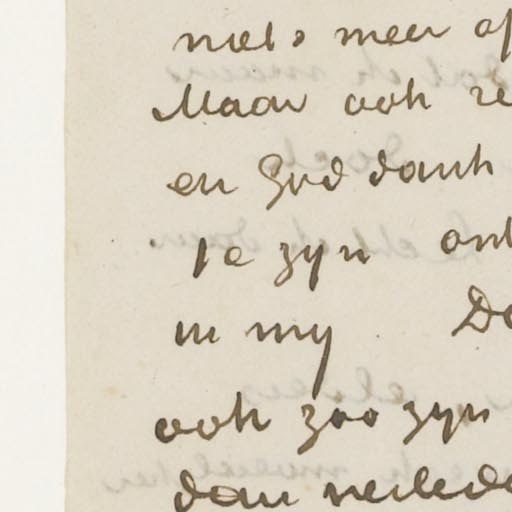 niets meer op
Maar ook re
en God dank
te zyn ont
in my Do
ook zoo zyn
dan verlede